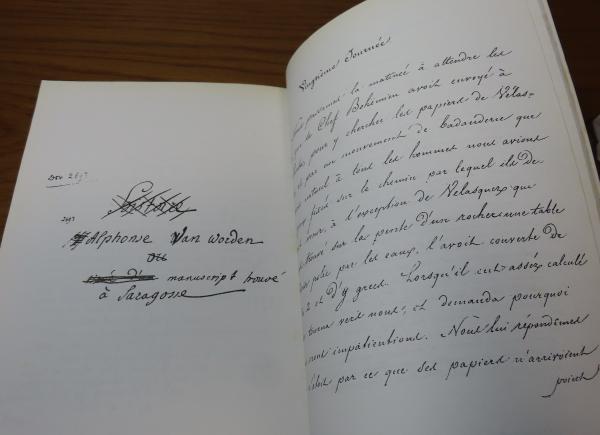 2697
Alphonse Van Worden
ou
manuscript trouvé
à Saragosse
Journée
passames la matinée à attendre les
Chef Bohémien avoit envoyé à
pour y chercher les papiers de Velas-
par un mouvement de badauderie que
à tous les hommes nous avions
fixés sur le chemin par lequel ils de
à l'exception de Velasquez que
trouvé sur la pente d'un rocher une table
polie par les eaux, l'avoit couverte de
z et d'y grecs. Lorsqu'il eut assés calculé
tourna vers nous, et demanda pourquoi
impatientions. Nous lui répondimes
par ce que ses papiers n'arrivoient
point